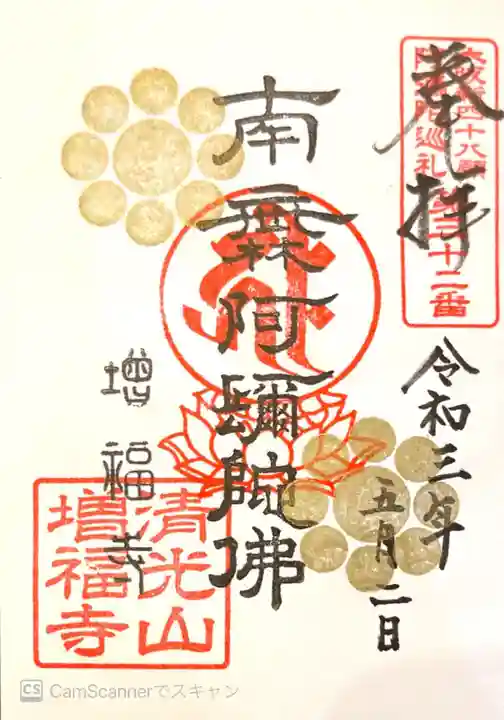 奉拝
大阪新四十八願
阿弥陀巡礼第三十二番
令和三年
五月二日
南無阿彌陀佛
増福寺
清光山
増福寺
CS CamScannerでスキャン